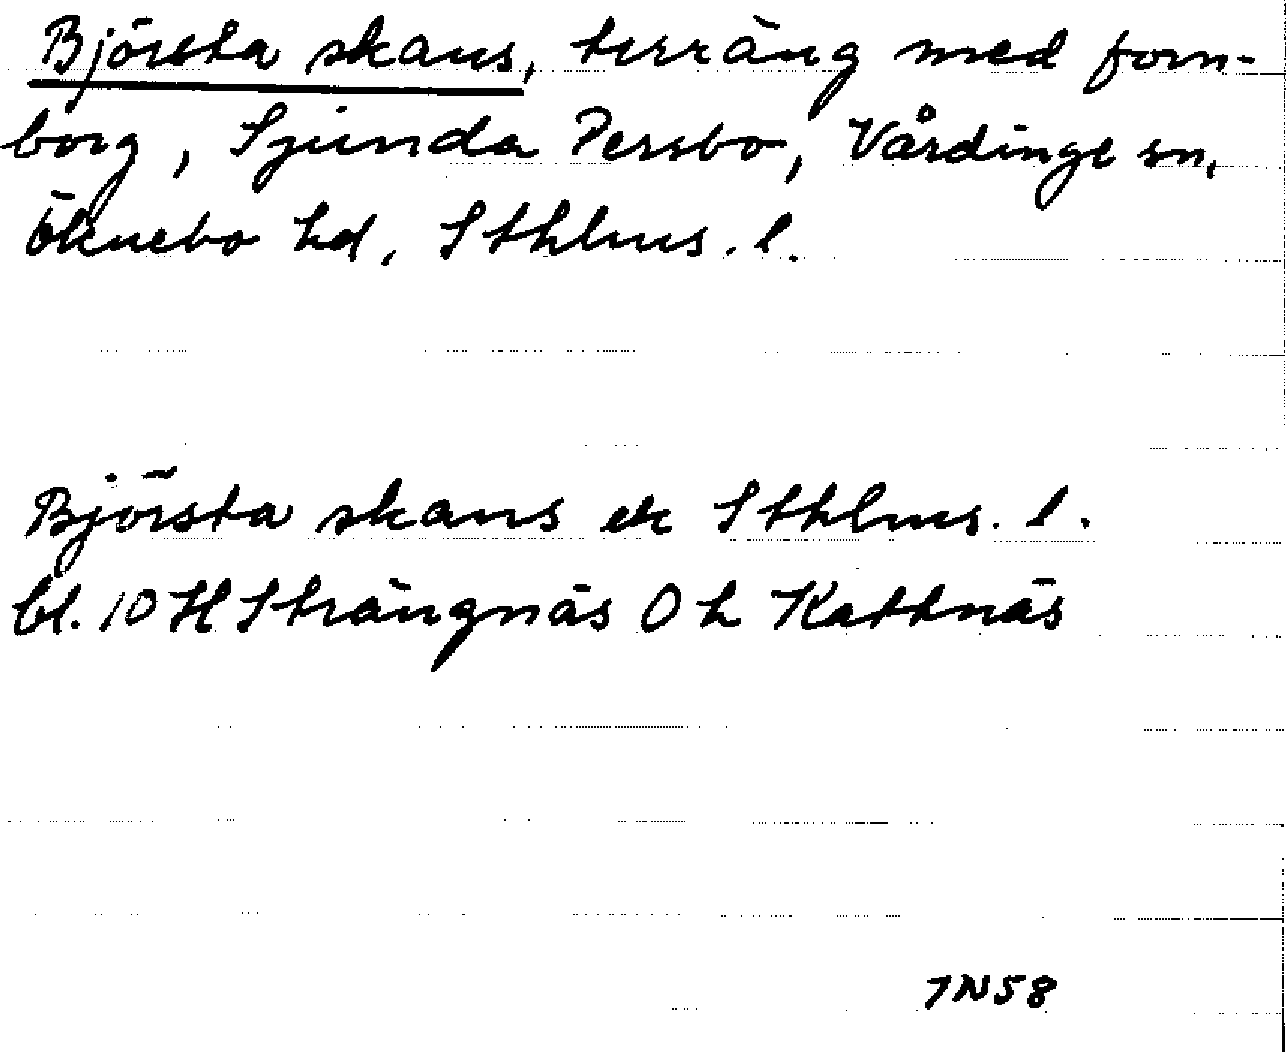 Björsta skans, terräng med forn-
borg, Sjunda Persbo, Vårdinge sn,
Öknebo hd, Sthlms. l.
Björsta skans ek Sthlms. l.
bl. 10 H Strängnäs 0 h Kattnäs
7N58